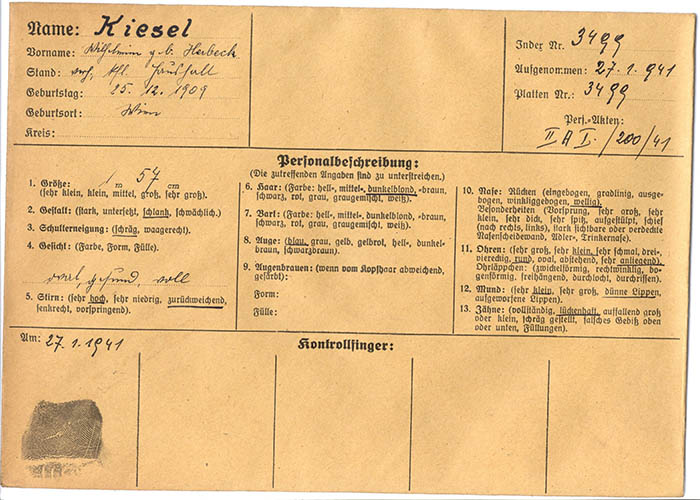 Name: Kiesel
Vorname: Wilhelmine geb. Herbeck
Stand: verh., Haushalt
Geburtstag: 25. 12. 1909
Geburtsort: Wien
Kreis:
Index Nr. 3499
Aufgenommen: 27. 1. 941
Platten Nr.: 3499
Pers.-Akten:
II A I. /200/41
Personalbeschreibung:
(Die zutreffenden Angaben sind zu unterstreichen.)
1. Größe: 1 m 57 cm
(sehr klein, klein, mittel, groß, sehr groß).
2. Gestalt: (stark, untersetzt, schlank, schwächlich.)
3. Schulterneigung: (schräg, waagerecht).
4. Gesicht: (Farbe, Form, Fülle).
oval, gesund, voll
5. Stirn: (sehr hoch, sehr niedrig, zurückweichend,
senkrecht, vorspringend).
6. Haar: (Farbe: hell-, mittel-, dunkelblond, -braun,
schwarz, rot, grau, graugemischt, weiß).
7. Bart: (Farbe: hell-, mittel-, dunkelblond, -braun,
schwarz, rot, grau, graugemischt, weiß).
8. Auge: (blau, grau, gelb, gelbrot, hell-, dunkel-
braun, schwarzbraun).
9. Augenbrauen: (wenn vom Kopfhaar abweichend,
gefärbt):
Form:
Fülle:
10. Nase: Rücken (eingebogen, gradlinig, ausge-
bogen, winkliggebogen, wellig).
Besonderheiten (Vorsprung, sehr groß, sehr
klein, sehr dick, sehr spitz, aufgestülpt, schief
(nach rechts, links), stark sichtbare oder verdeckte
Nasenscheidewand, Adler-, Trinkernase).
11. Ohren: (sehr groß, sehr klein, sehr schmal, drei-,
viereckig, rund, oval, abstehend, sehr anliegend).
Ohrläppchen: (zwickelförmig, rechtwinklig, bo-
genförmig, freihängend, durchlocht, durchrissen).
12. Mund: (sehr klein, sehr groß, dünne Lippen,
aufgeworfene Lippen).
13. Zähne: (vollständig, lückenhaft, auffallend groß
oder klein, schräg gestellt, falsches Gebiß oben
oder unten, Füllungen).
Am: 27. 1. 1941
Kontrollfinger: